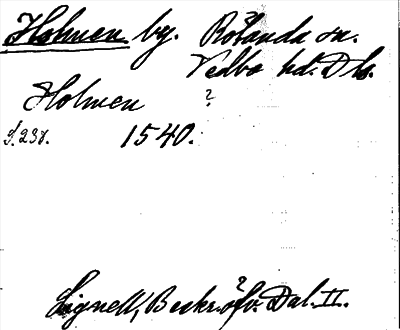 Holmen by. Rölanda sn.
Vedbo hd. Dls.
Holmen ?
S. 237. 1540.
Lignell, Beskr. öfv. Dal. II.